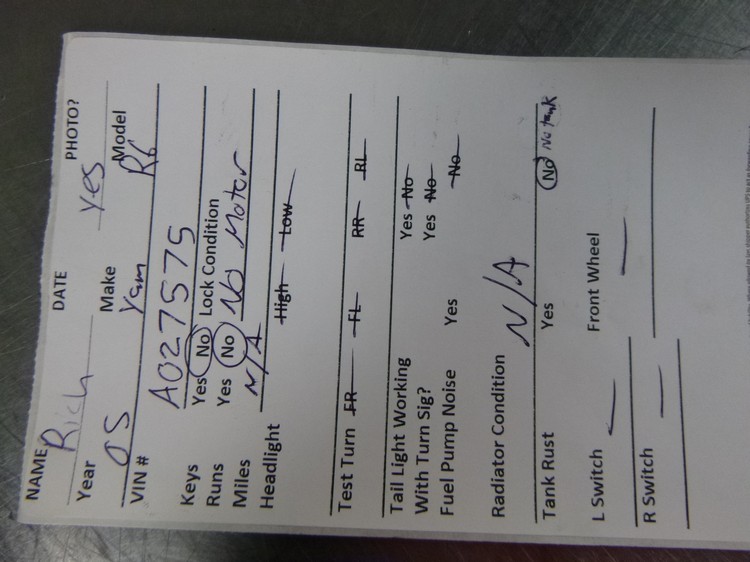 NAME Rich DATE PHOTO? yes
Year Make Model
05 Yam R6
VIN # A027575
Keys Yes No Lock Condition
Runs Yes No No Motor
Miles N/A
Headlight High Low
Test Turn FR FL RR RL
Tail Light Working Yes No
With Turn Sig? Yes No
Fuel Pump Noise Yes No
Radiator Condition N/A
Tank Rust Yes No No tank
L Switch — Front Wheel —
R Switch —